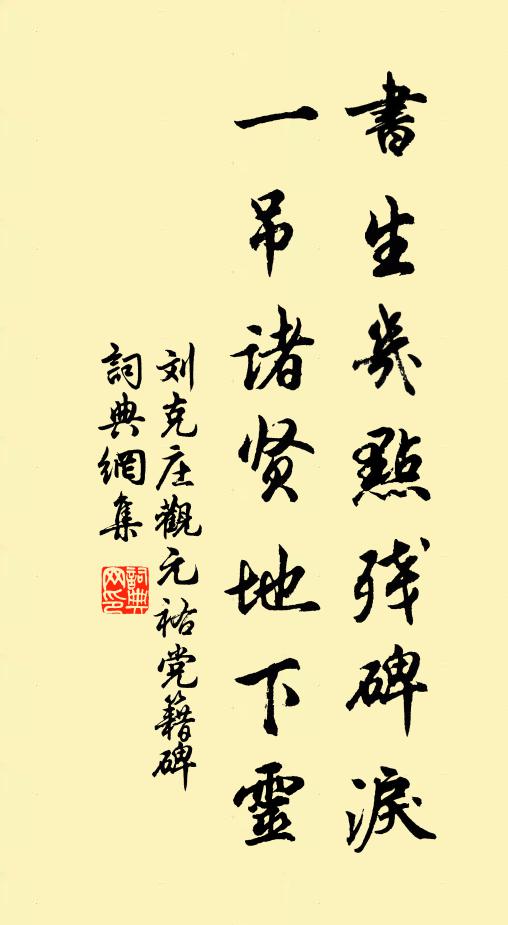 書生幾點殘碑淚
一吊诸贤地下靈
刘克庄觀元祐党籍碑
詞典網集
詞典
網印